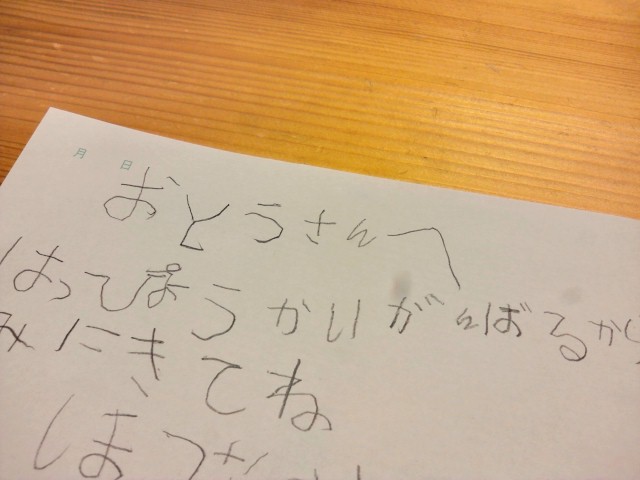 月 日
おとうさんへ
はっぴょうかいがんばるから
みにきてね